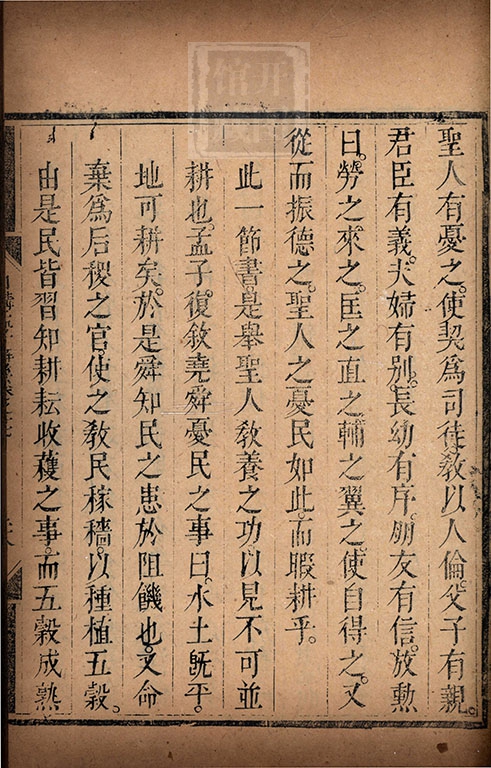 聖人有憂之。使契爲司徒。敎以人倫。父子有親。
君臣有義。夫婦有別。長幼有序。朋友有信。放勲
曰。勞之來之。匡之直之。輔之翼之。使自得之。又
從而振德之。聖人之憂民如此。而暇耕乎。
此一節書是舉聖人敎養之功以見不可並
耕也。孟子復敘堯舜憂民之事曰。水土旣平。
地可耕矣。於是舜知民之患於阻饑也。又命
棄爲后稷之官。使之敎民稼穡。以種植五穀。
由是民皆習知耕耘收穫之事。而五穀成熟